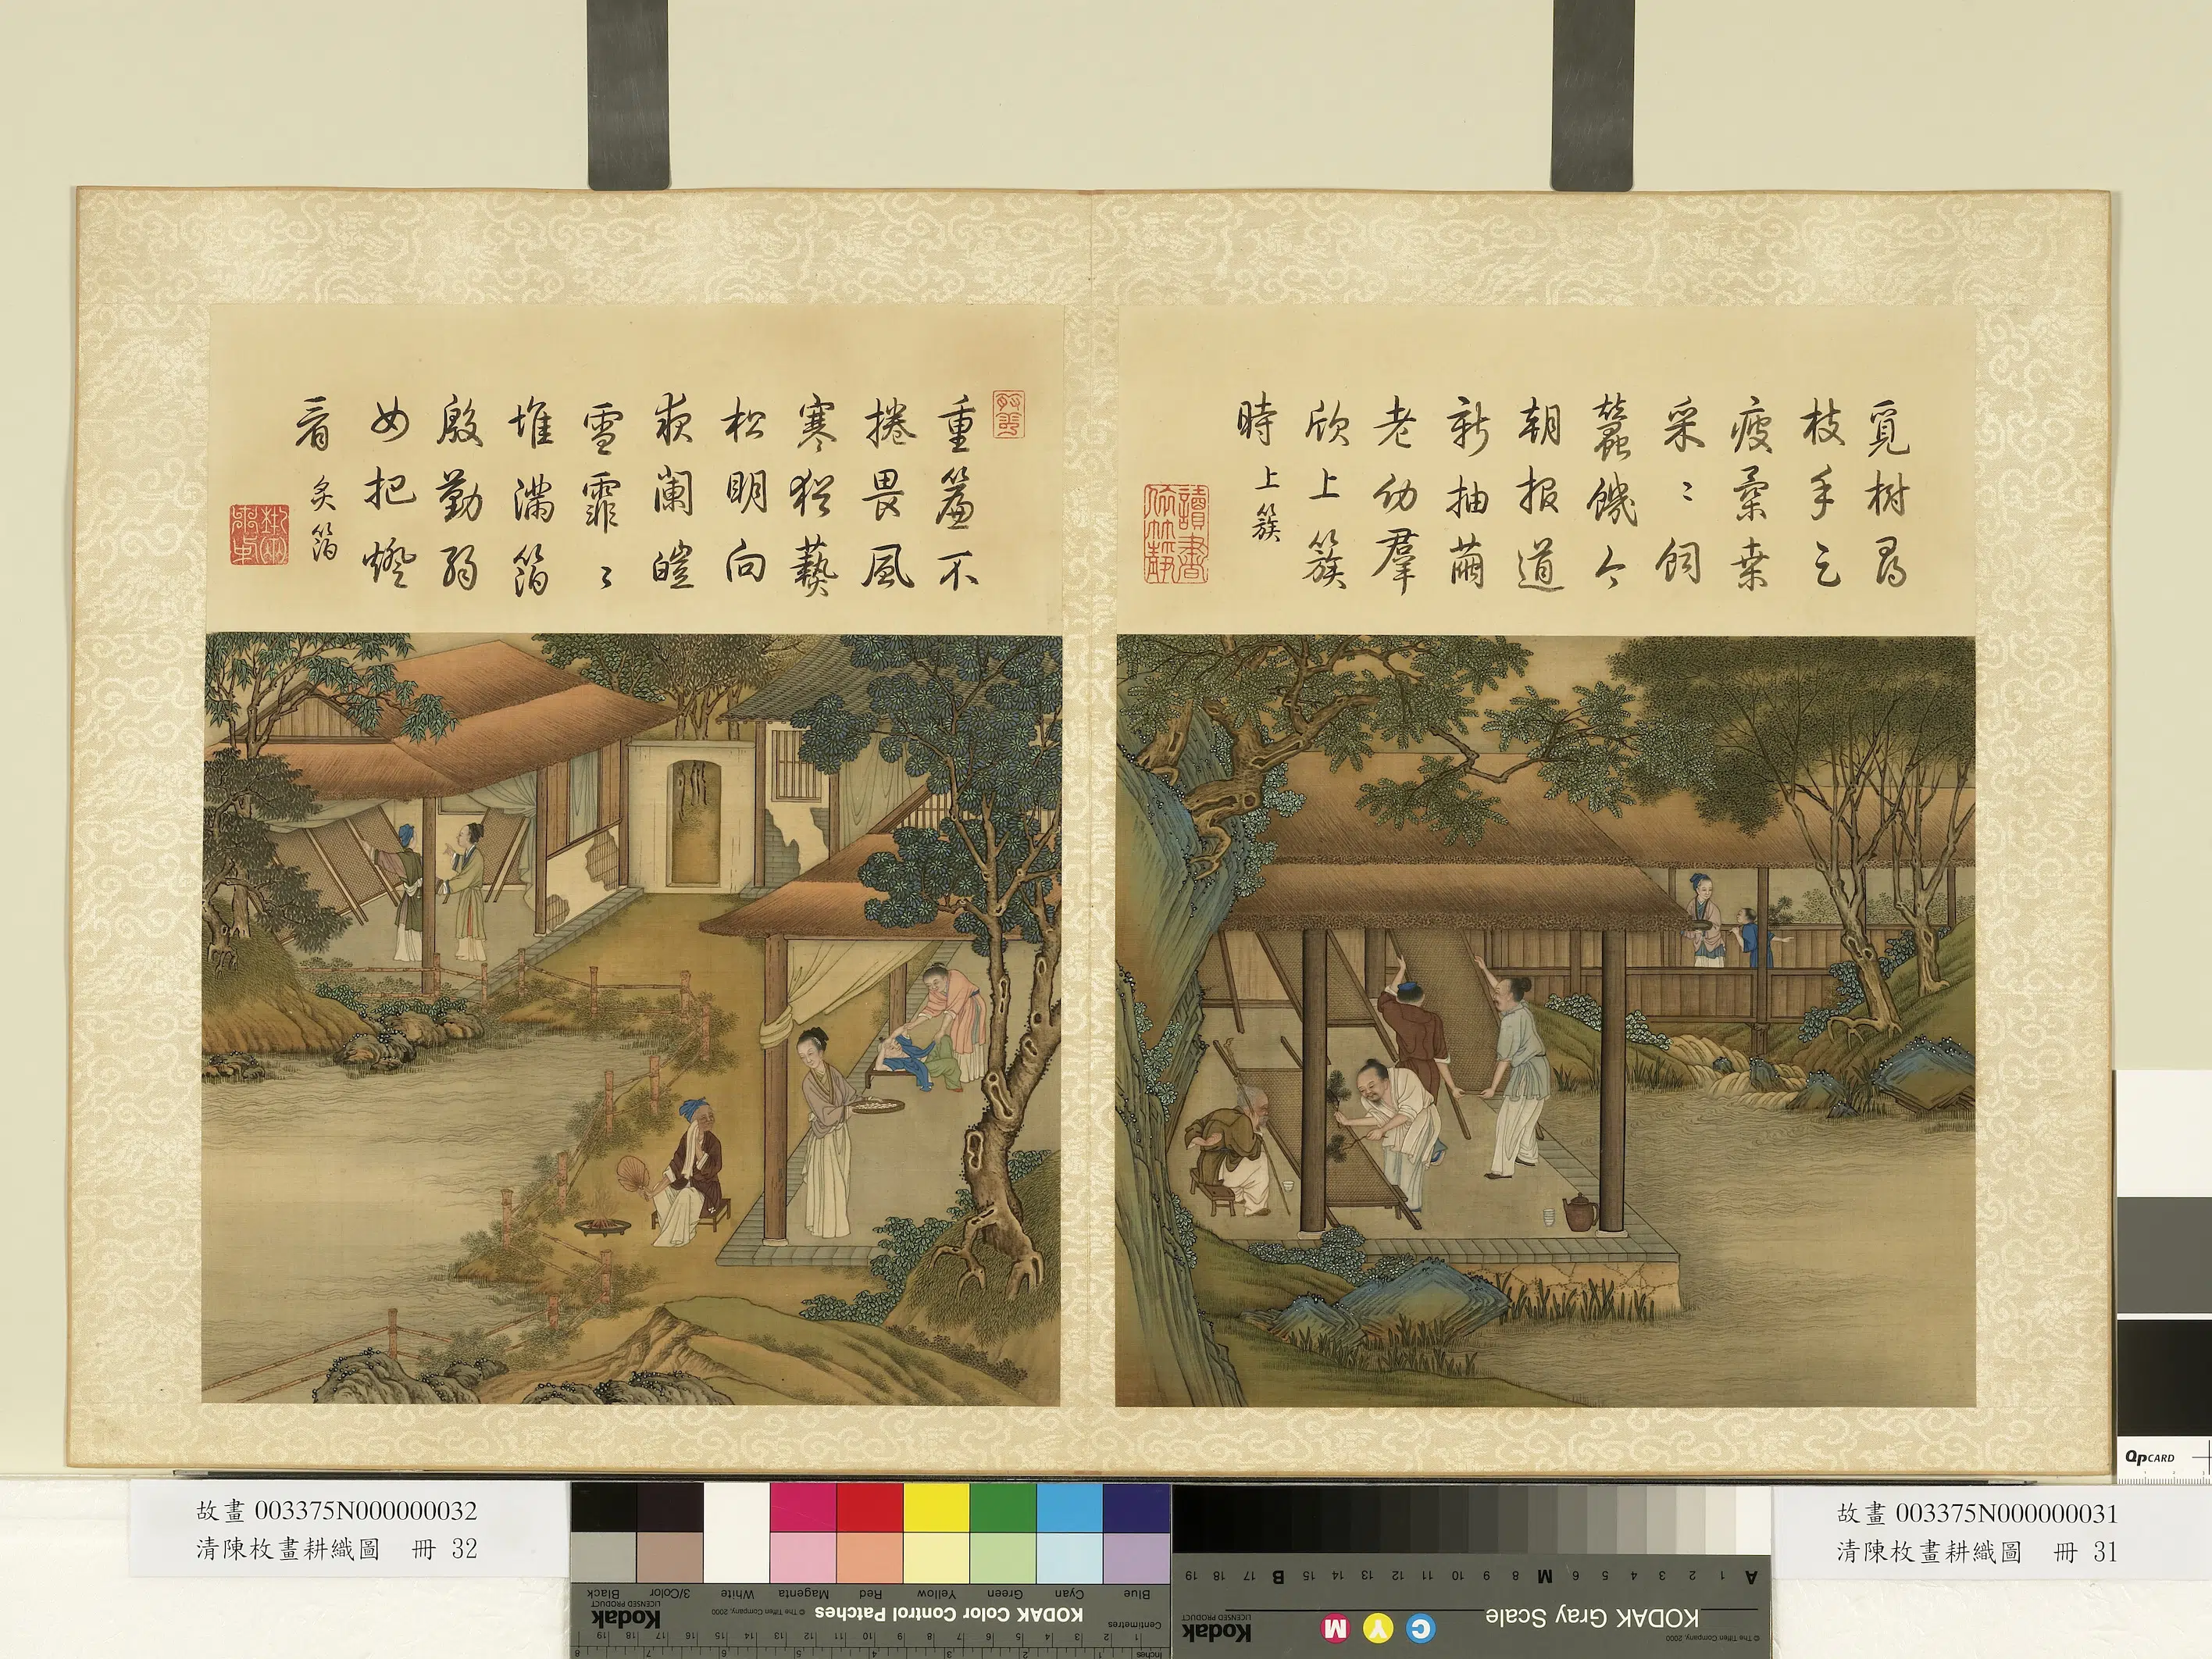 覓樹尋
枝手足
疲柔桒
采〻飼
蠶饑今
朝報道
新抽繭
老幼羣
欣上簇
時 上簇
重簾不
捲畏風
寒猶爇
松明向
夜闌皚
雪霏〻
堆滿箔
殷勤弱
女把燈
看 炙箔
故畫 003375N000000032
清陳枚畫耕織圖 冊 32
故畫 003375N000000031
清陳枚畫耕織圖 冊 31
QPCARD
Blue Cyan Green Yellow Red Magenta White 3/Color Black
KODAK Color Control Patches
© The Tiffen Company, 2000
Kodak
LICENSED PRODUCT
Centimetres
Inches
A 1 2 3 4 5 6 M 8 9 10 11 12 13 14 15 B 17 18 19
KODAK Gray Scale
C Y M
Kodak
LICENSED PRODUCT
© The Tiffen Company, 2000